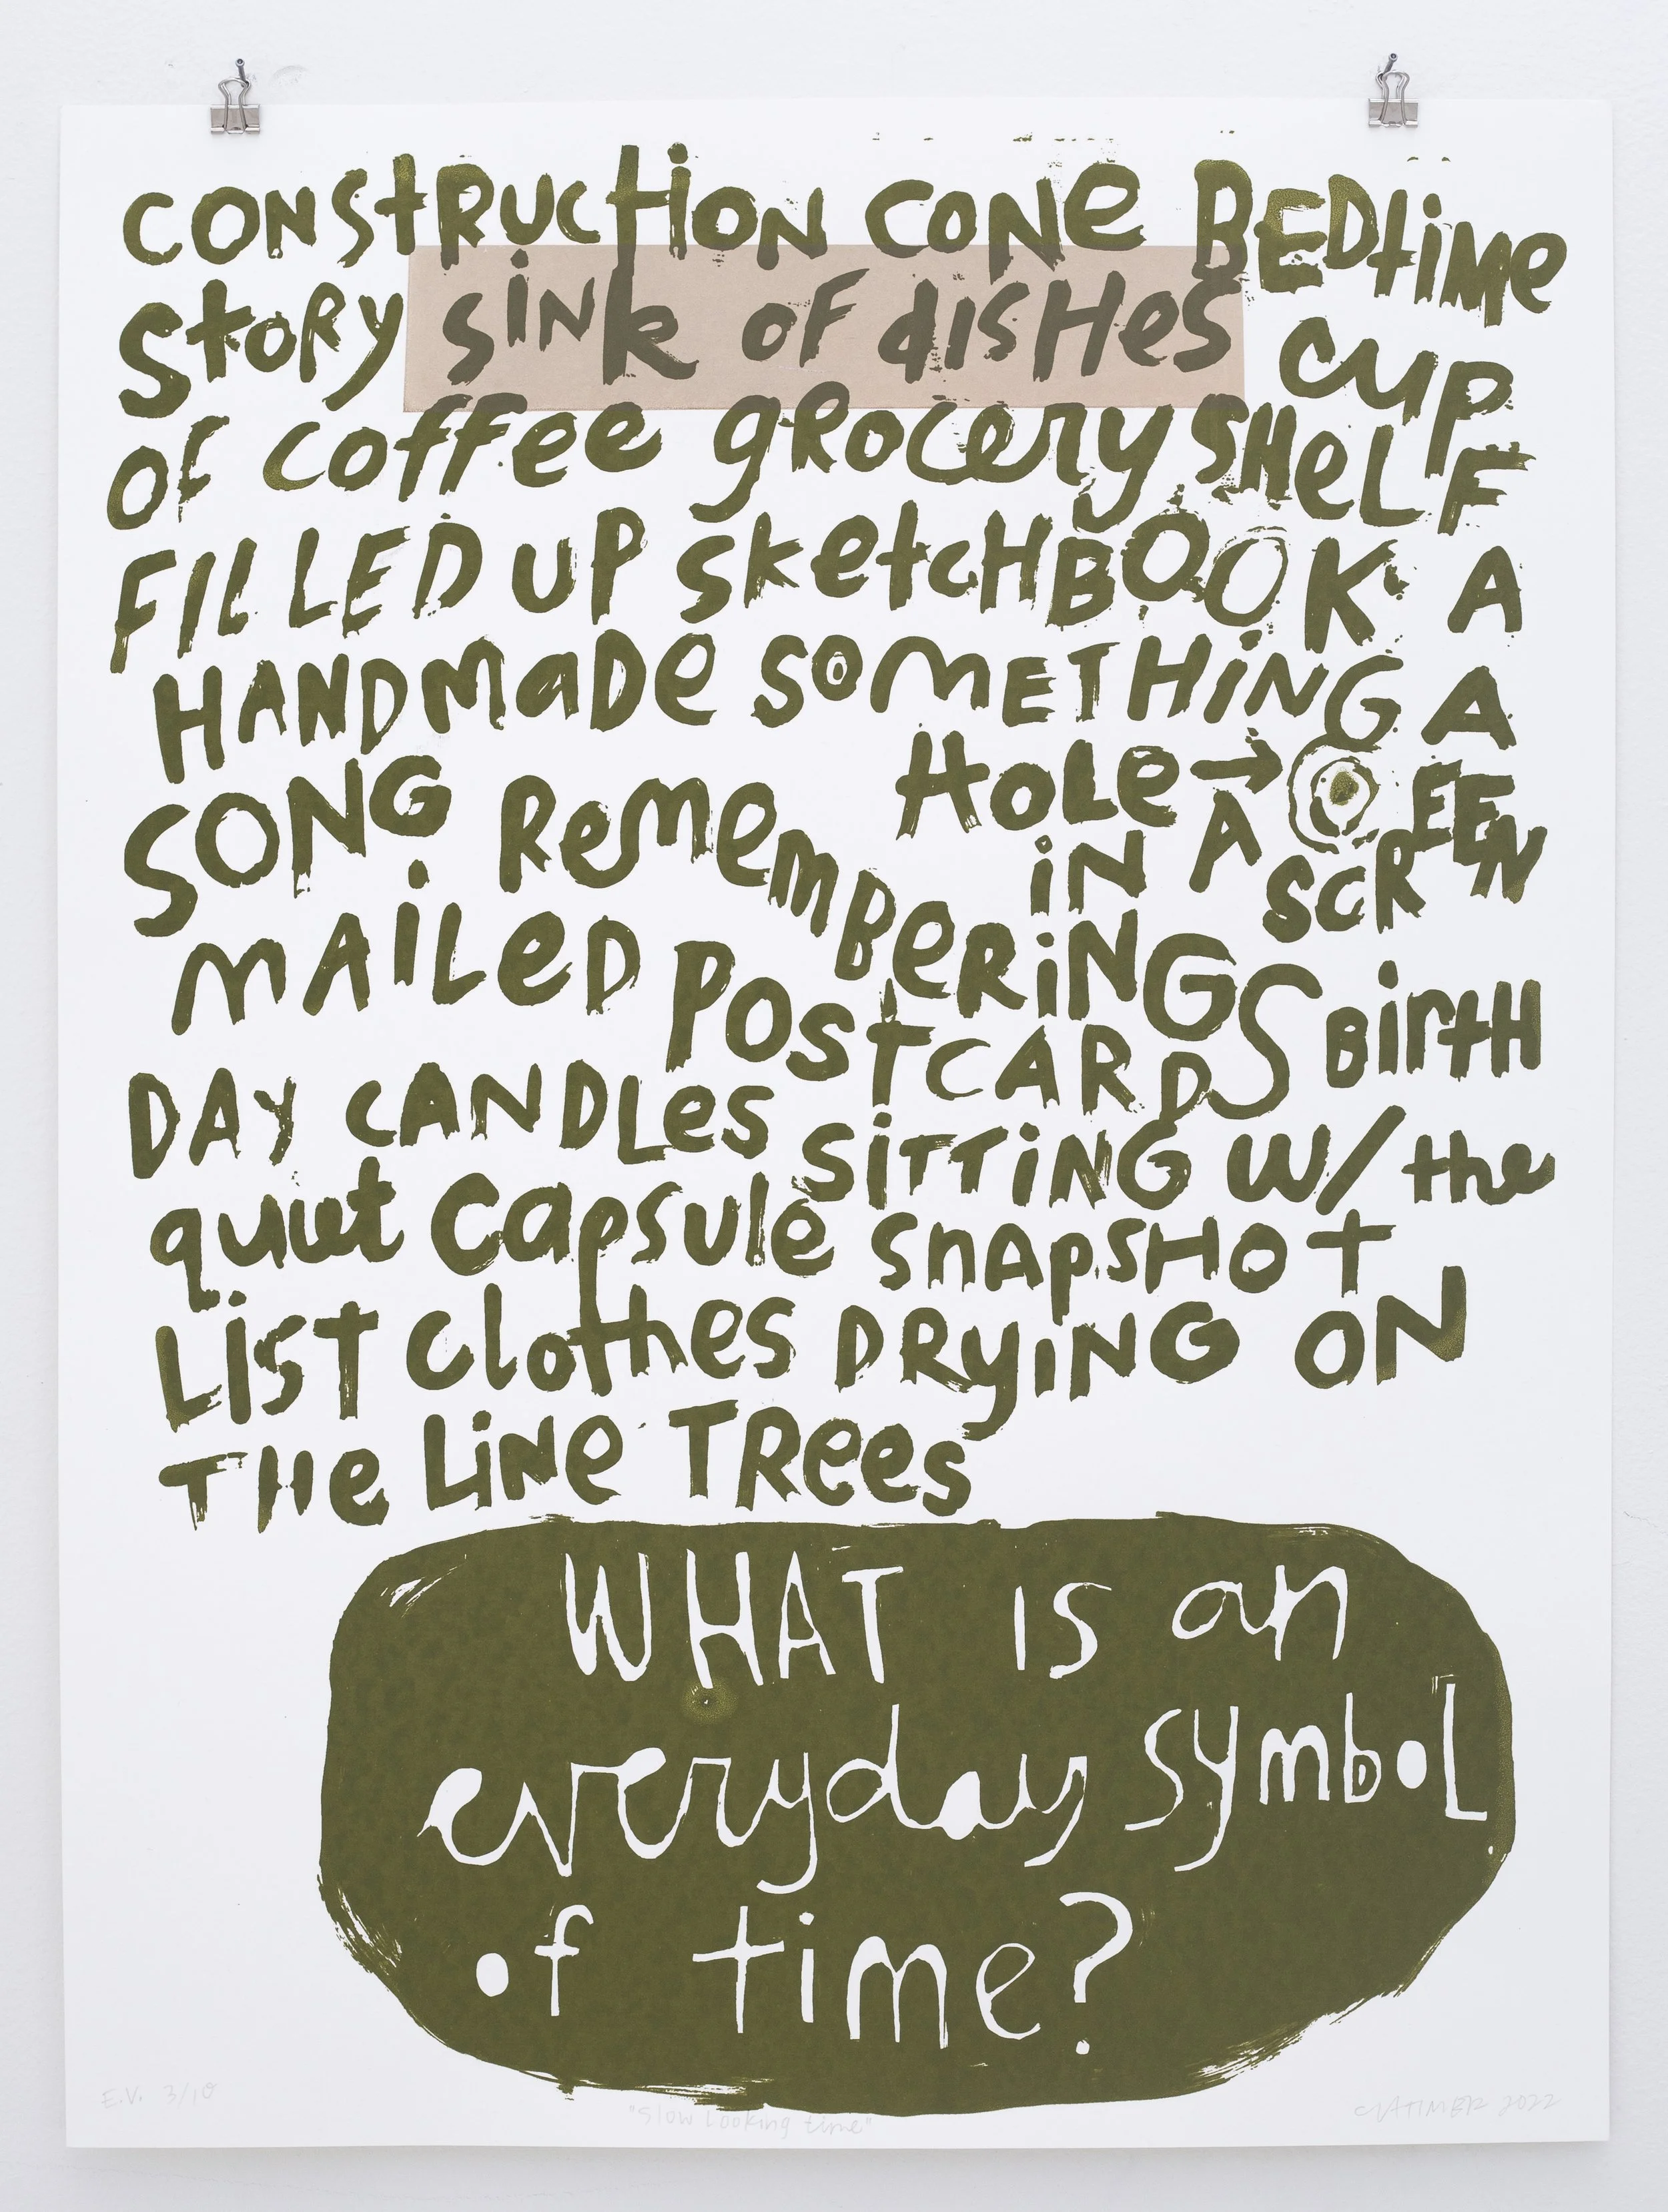 CONStRUCtiON CONe BEDtiMe
StORy siNk OF dIsHes cup
OF coffee gROcery SHeLF
FILLED UP sketcHBOOK A
HANDmaDe SOMETHiNG A
SONG RemememBeRiNGS
HOLe→
iN A SCREEN
mAiLeD POStCARDS BirtH
DAy CANDLes SiTTiNG W/ the
quiet capsule SnApSHOt
LiSt clothes DRyiNG ON
THe LiNe TRees
WHAT IS an
everyday symbOL
of time?
E.V. 3/10
"Slow Looking time"
CLATIMER 2022